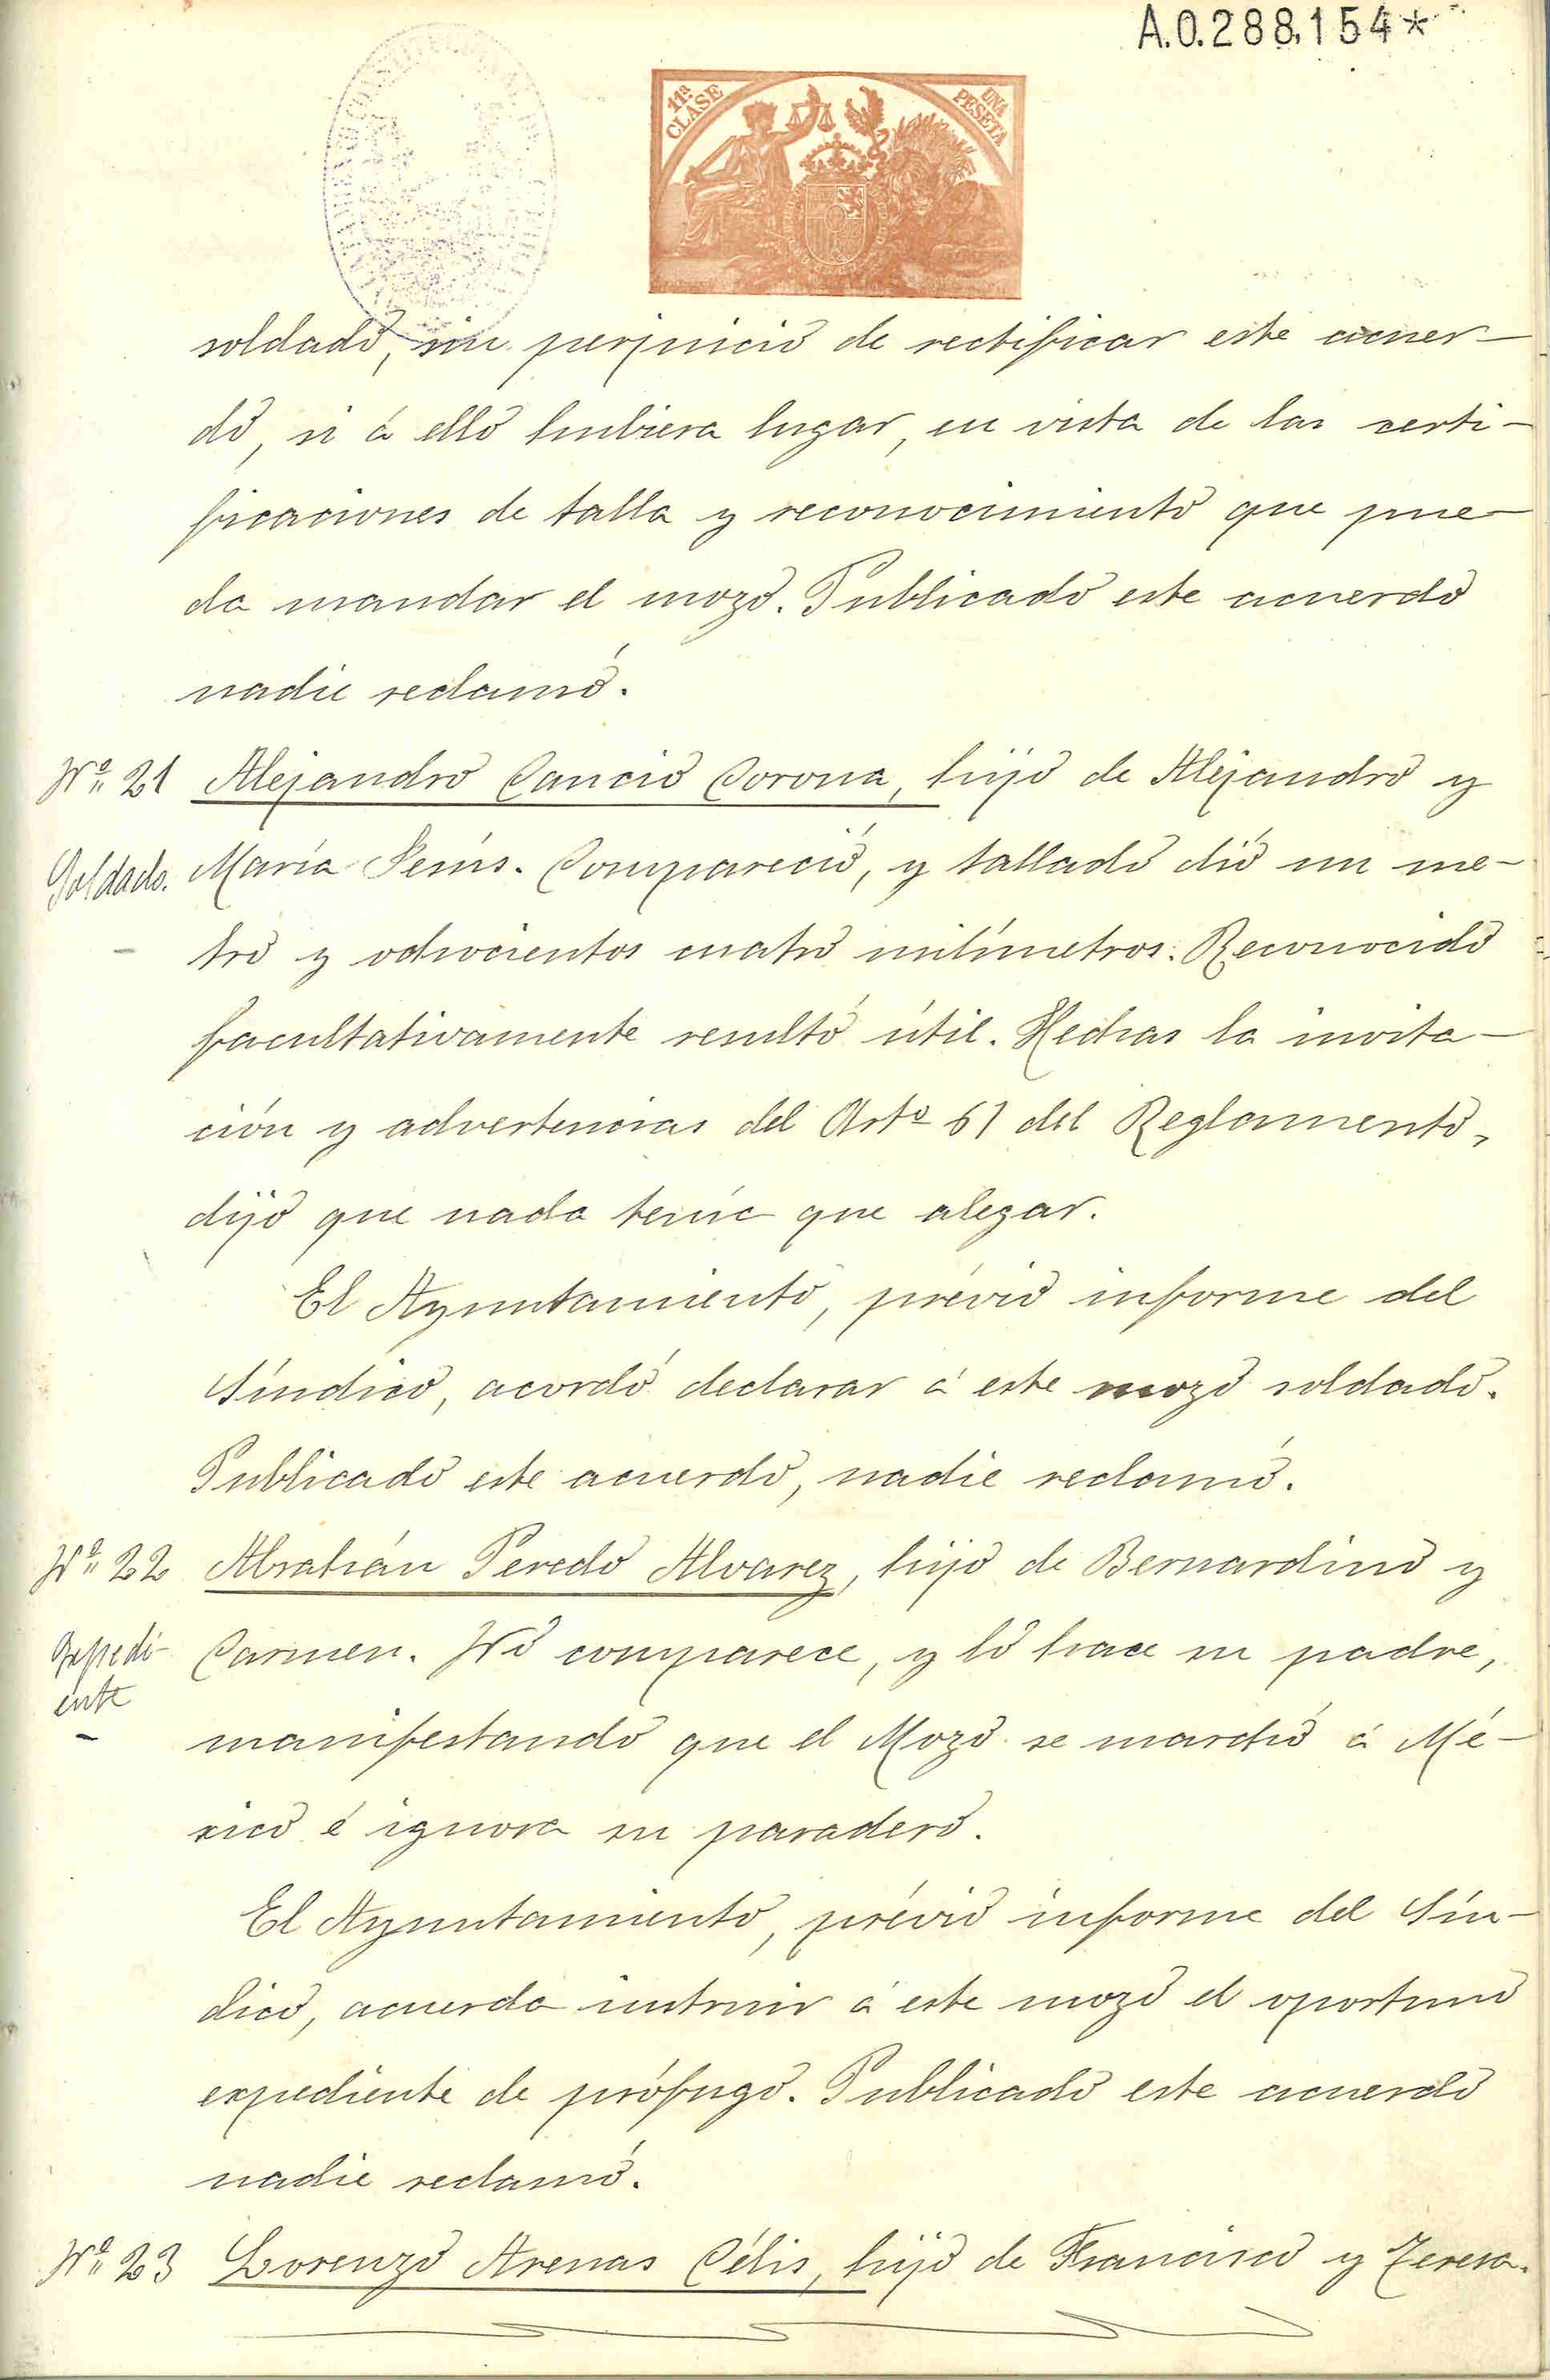 A.0.288,154*
11ª CLASE
UNA PESETA
soldado, sin perjuicio de rectificar este acuer-
do, si á ello hubiera lugar, en vista de las certi-
ficaciones de talla y reconocimiento que pue-
da mandar el mozo. Publicado este acuerdo
nadie reclamó.
Nº 21 Alejandro Cancio Corona, hijo de Alejandro y
Soldado. María Jesús. Compareció, y tallado dió un me-
tro y ochocientos cuatro milímetros. Reconocido
facultativamente resultó útil. Hechas la invita-
ción y advertencias del Artº 61 del Reglamento,
dijo que nada tenía que alegar.
El Ayuntamiento, prévio informe del
Síndico, acordó declarar á este mozo soldado.
Publicado este acuerdo, nadie reclamó.
Nº 22 Abrahán Peredo Alvarez, hijo de Bernardino y
Expedi- Carmen. No comparece, y lo hace su padre,
ente
manifestando que el Mozo se marchó á Mé-
xico é ignora su paradero.
El Ayuntamiento, prévio informe del Sín-
dico, acuerda instruir á este mozo el oportuno
expediente de prófugo. Publicado este acuerdo
nadie reclamó.
Nº 23 Lorenzo Arenas Célis, hijo de Francisco y Teresa.